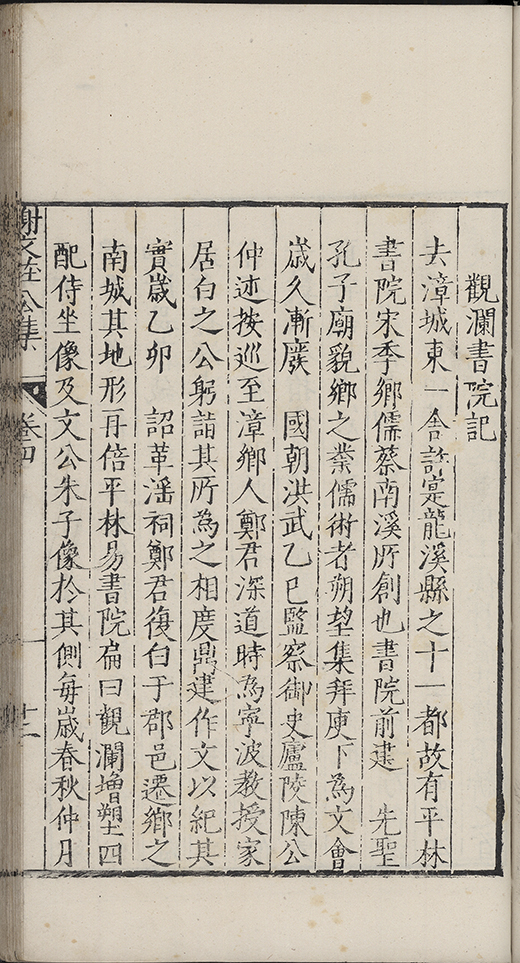 觀瀾書院記
去漳城東一舍許寔龍溪縣之十一都故有平林
書院宋季鄉儒蔡南溪所創也書院前建　先聖
孔子廟貌鄉之業儒術者朔望集拜庾下為文會
歲久漸廢　國朝洪武乙巳監察御史廬陵陳公
仲述按巡至漳鄉人鄭君深道時為寧波教授家
居白之公躬詣其所為之相度鼎建作文以紀其
實歲乙卯　詔革滛祠鄭君復白于郡邑遷鄉之
南城其地形再倍平林易書院扁曰觀瀾增塑四
配侍坐像及文公朱子像於其側每歲春秋仲月
謝文莊公集
卷四
十二